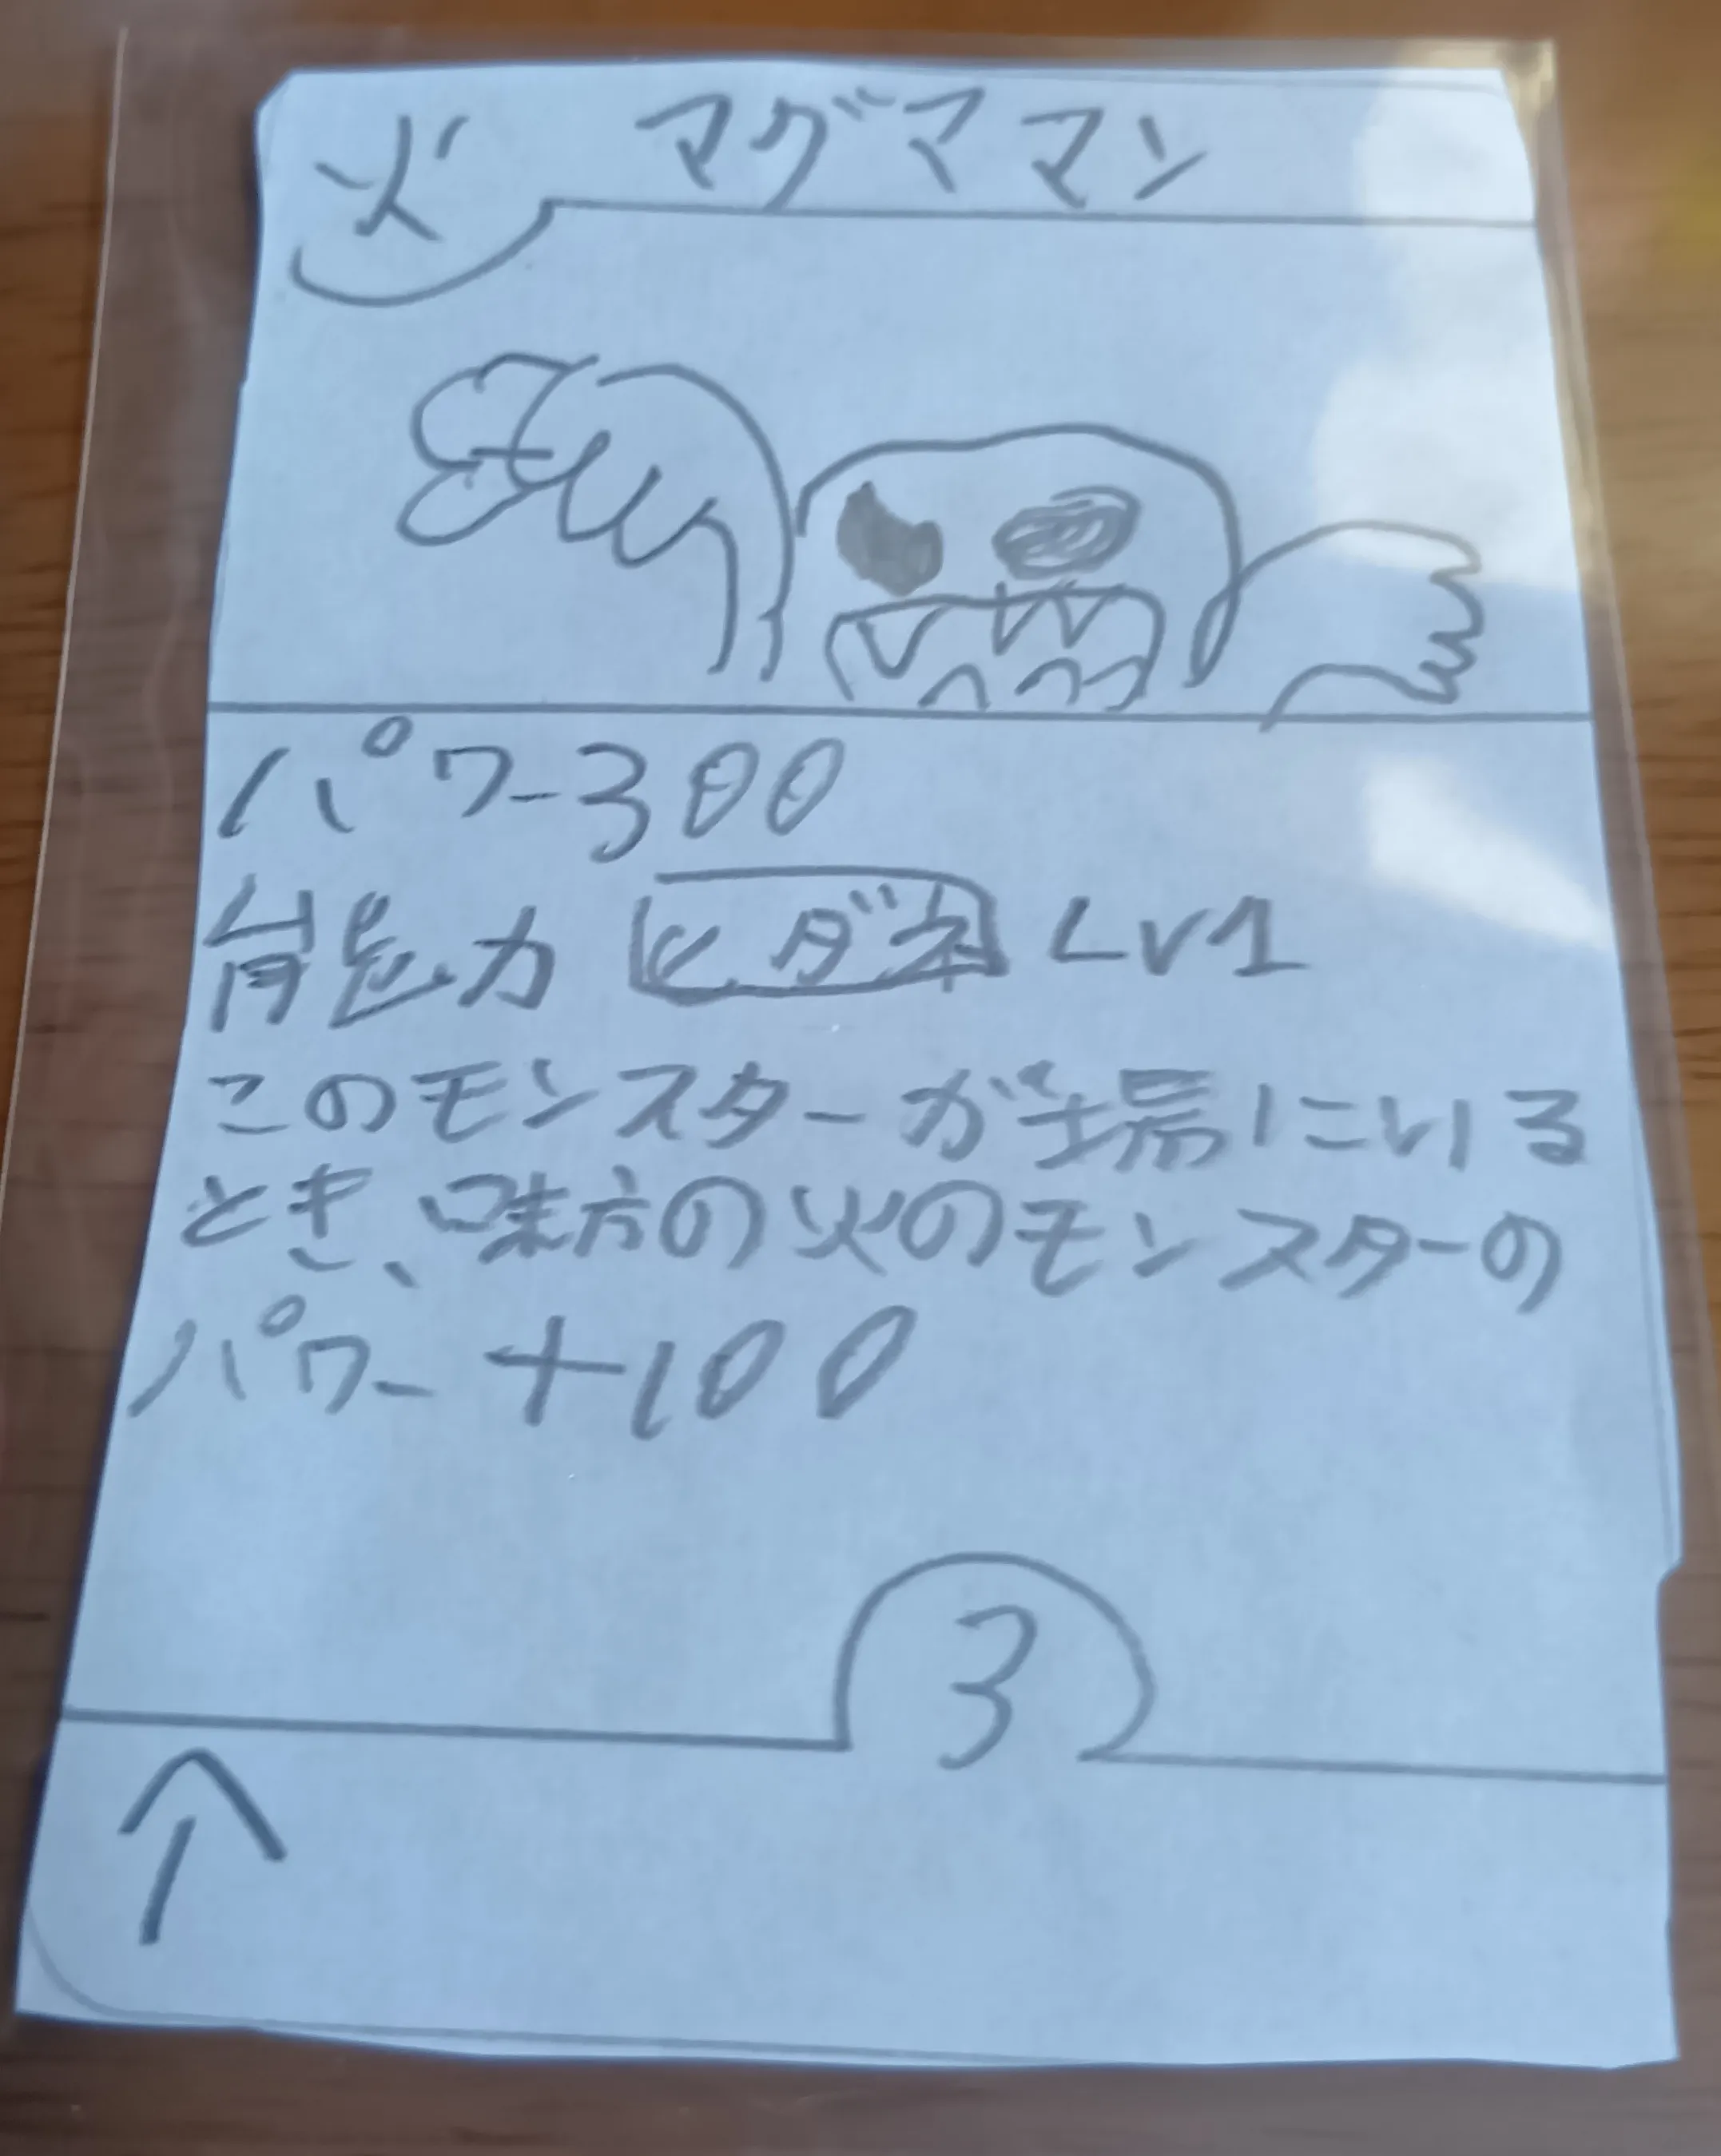 火 マグママン
パワー300
能力 ヒダネ Lv1
このモンスターが場にいる
とき、味方の火のモンスターの
パワー +100
3
↑